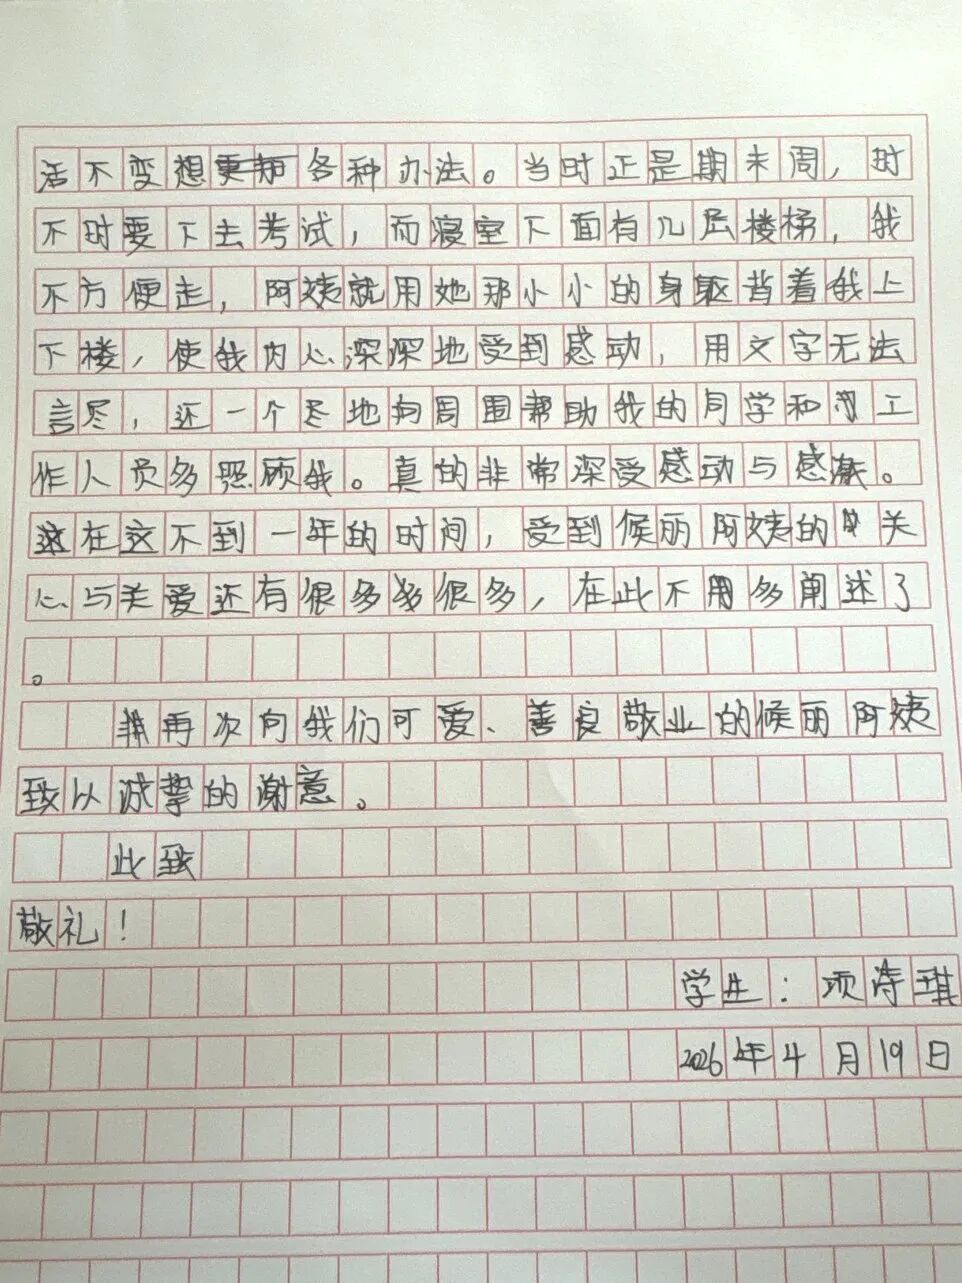 活不变想各种办法。当时正是期末周，时
不时要下去考试，而寝室下面有几层楼梯，我
不方便走，阿姨就用她那小小的身躯背着我上
下楼，使我内心深深地受到感动，用文字无法
言尽，还一个尽地向周围帮助我的同学和工
作人员多照顾我。真的非常深受感动与感激。
在这不到一年的时间，受到候丽阿姨的关
心与关爱还有很多很多，在此不用多阐述了
。
再次向我们可爱、善良敬业的候丽阿姨
致以诚挚的谢意。
此致
敬礼！
学生：项诗琪
2026年4月19日